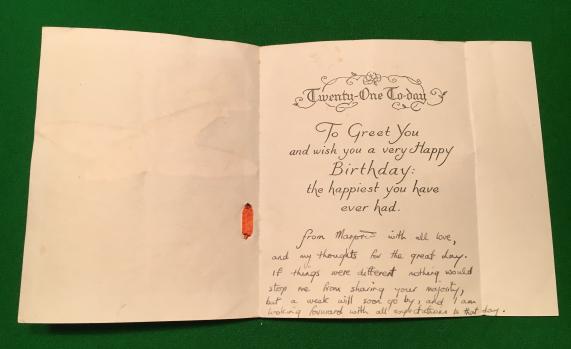 Twenty-One To-day
To Greet You
and wish you a very Happy
Birthday:
the happiest you have
ever had.
from with all love,
and my thoughts for the great day.
If things were different nothing would
stop me from sharing your majority,
but a week will soon go by, and I am
looking forward with all expectations to that day.